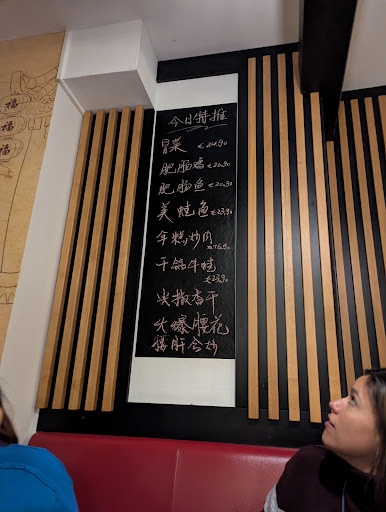 福
福
福
今日特推
冒菜 €24,90
肥肠鸡 €20,90
肥肠鱼 €20,90
美蛙鱼 €23,90
年糕炒肉
€16,90
干锅牛蛙
€23,90
尖椒香干
火爆腰花
腰肝合炒